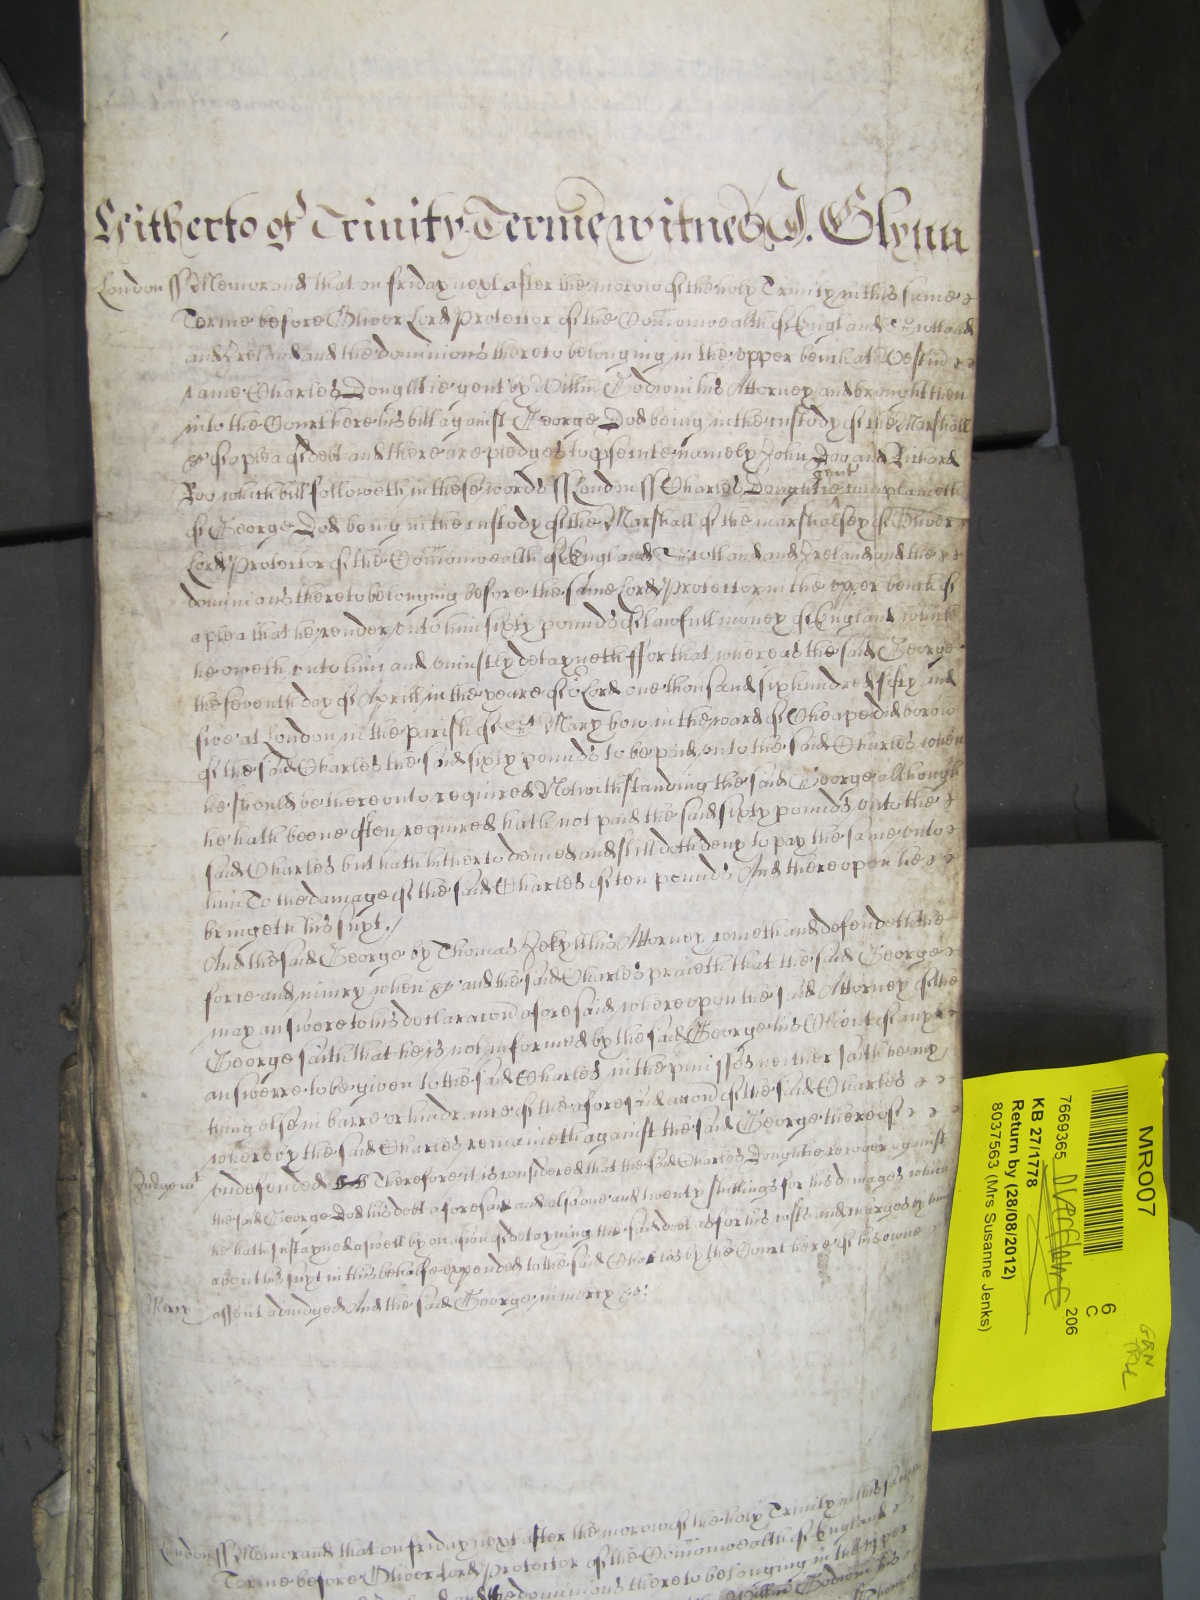 Hitherto of Trinity Terme witnes J. Glynn
London ss Memorand that on friday next after the morow of the holy Trinity in this same
Terme before Oliver Lord Protector of the Comonwealth of England Scotland
and Ireland and the dominions thereto belonging in the upper bench at Westm
came Charles Doughtie gent by Willm Godwin his Attorney and brought then
into the Court here his bill against George Dod being in the custody of the Marshall
&c of a plea of debt and there are pledges to psecute namely John Doo and Richard
Roo which bill followeth in these words ss London ss Charles Doughtie gent complaineth
of George Dod being in the custody of the Marshall of the marshalsey of Oliver
Lord Protector of the Comonwealth of England Scotland and Ireland and the
dominions thereto belonging before the same Lord Protector in the upper bench of
a plea that he render unto him sixty pounds of lawfull money of England which
he oweth unto him and uniustly detayneth ffor that whereas the said George
the seventh day of Aprill in the yeare of or Lord one thousand six hundred fifty and
five at London in the parish of Mary bow in the ward of Cheape did borow
of the said Charles the said sixty pounds to be paid unto the said Charles when
he should be thereunto required Notwithstanding the said George although
he hath beene often required hath not paid the said sixty pounds unto the
said Charles but hath hitherto denied and still doth deny to pay the same unto
him To the damage of the said Charles of ten pounds And thereupon he
bringeth his suyt /
And the said George by Thomas Jekyll his Attorney cometh and defendeth the
force and iniury when &c and the said Charles praieth that the said George
may answere to his declaracon aforesaid whereupon the said Attorney of the
George saith that he is not informed by the said George his Client of any
answere to be given to the said Charles in the pmisses neither saith he any
thing else in barre or hindrance of the aforesaid accon of the said Charles
whereby the said Charles remaineth against the said George thereof
Judgemt undefended Therefore it is considered that the said Charles Doughtie recover against
the said George Dod his debt aforesaid and also one and twenty shillings for his damages which
he hath sustayned aswell by occasion of detayning the said debt as for his costs and charges by him
about his suyt in this behalfe expended to the said Charles by the Court here of his owne
Mercy assent adiudged And the said George in mercy &c
London ss Memorand that on friday next after the morow of the holy Trinity in this same
Terme before Oliver Lord Protector of the Comonwealth of England
and the dominions thereto belonging in the upper
Willm Godwin his
MRO07
6
C
7669365
206
KB 27/1778
Return by (28/08/2012)
8037563 (Mrs Susanne Jenks)